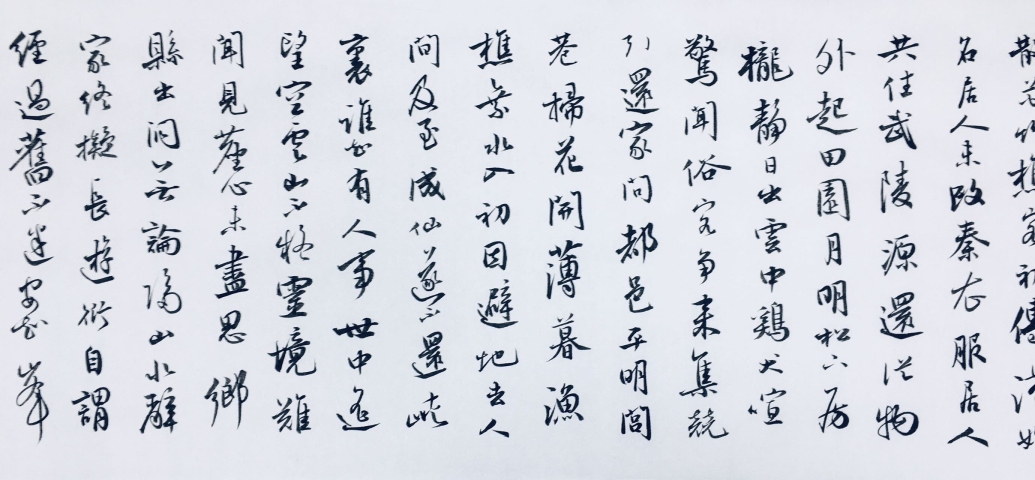 散花竹樵客初傳漢姓
名居人未改秦衣服居人
共住武陵源還從物
外起田園月明松下房
櫳靜日出雲中鷄犬喧
驚聞俗客爭來集競
引還家問都邑平明閭
巷掃花開薄暮漁
樵乘水入初因避地去人
間及至成仙遂不還峽
裏誰知有人事世中遙
望空雲山不疑靈境難
聞見塵心未盡思鄉
縣出洞無論隔山水辭
家終擬長遊衍自謂
經過舊不迷安知峯